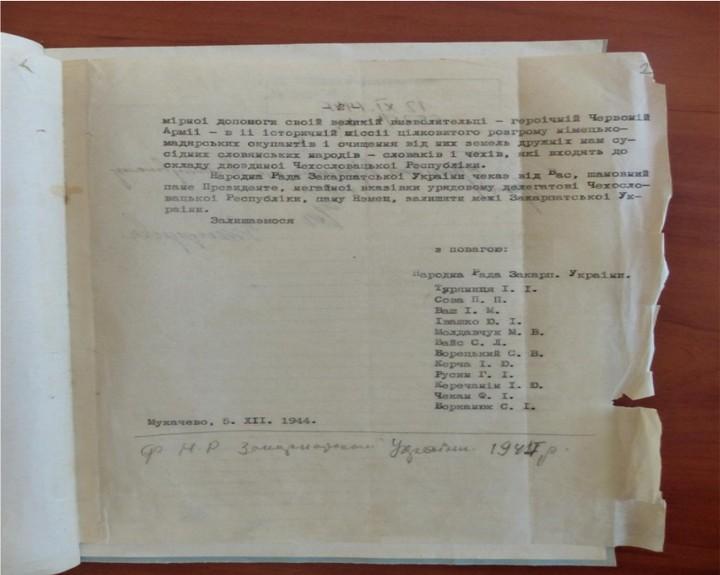 2
мірної допомоги своїй великій визволительці - героїчній Червоній
Армії - в її історичній міссії цілковитого розгрому німецько-
мадярських окупантів і очищення від них земель дружніх нам су-
сідних словянських народів - словаків і чехів, які входять до
складу двоєдиної Чехословацької Республіки.
Народна Рада Закарпатської України чекає від Вас, шановний
пане Президенте, негайної вказівки урядовому делегатові Чехосло-
вацької Республіки, пану Немец, залишити межі Закарпатської Ук-
раїни.
Залишаємося
з повагою:
Народна Рада Закарп. України.
Туряниця І. І.
Сова П. П.
Ваш І. М.
Івашко Ю. І.
Молдавчук М. В.
Вайс С. Л.
Борецький С. В.
Керча І. Ю.
Русин Г. І.
Керечанін І. Ю.
Чекан Ф. І.
Борканюк С. І.
Мукачево, 5. XII. 1944.
Ф Н.Р Закарпатської України 1944 р.